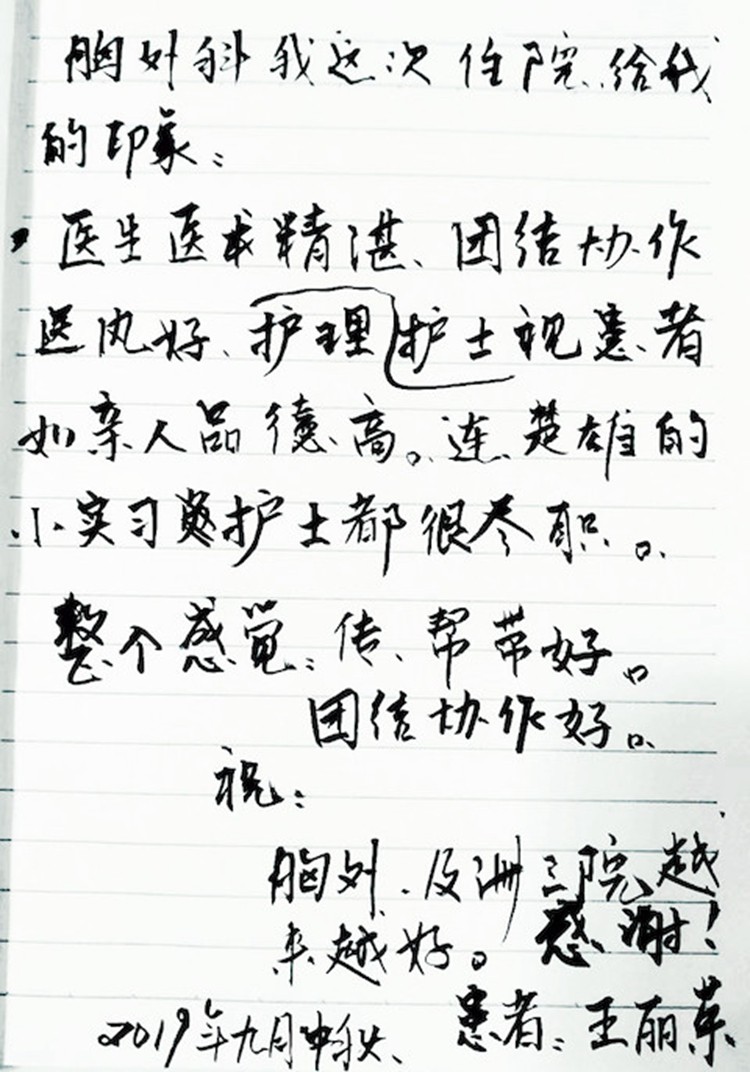 胸外科我这次住院、给我
的印象：
医生医术精湛、团结协作
医风好、护理护士视患者
如亲人品德高。连楚雄的
小实习护士都很尽职。
整个感觉：传、帮带好。
团结协作好。
祝：
胸外、及洲三院越
来越好。感谢！
患者：王丽英
2019年九月中秋、